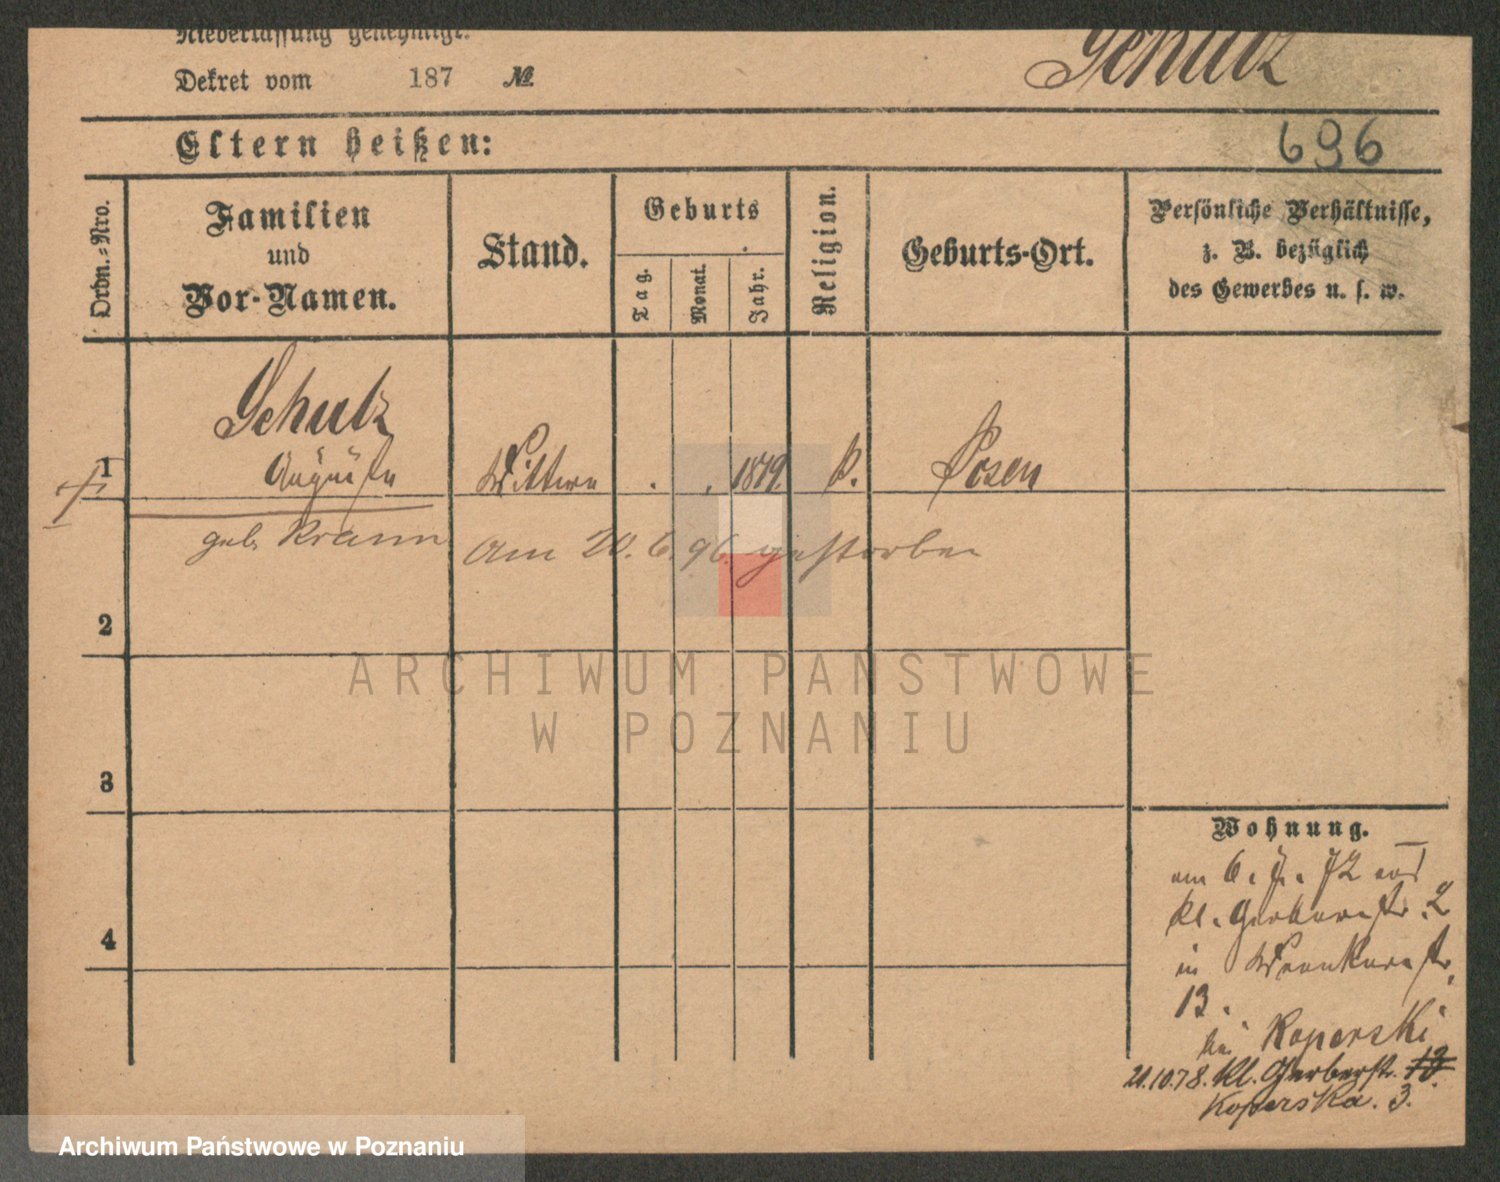 Niederlassung genehmigt.
Schulz
Dekret vom 187 №
Eltern heißen:
696
Ordn.-Nro.
Familien
und
Vor-Namen.
Stand.
Geburts
Tag.
Monat.
Jahr.
Religion.
Geburts-Ort.
Persönliche Verhältnisse,
z. B. bezüglich
des Gewerbes u. s. w.
Schulz
1 Auguste Wittwe . . 1819. k. Posen
geb. Krann am 20.6.96. gestorben
2
3
4
Wohnung.
am 6. 7. 72 aus
kl. Gerberstr. 2
in
13.
bei Koperski
21.10.78. Kl. Gerberstr. 13.
Koperska. 3.
ARCHIWUM PAŃSTWOWE
W POZNANIU
Archiwum Państwowe w Poznaniu